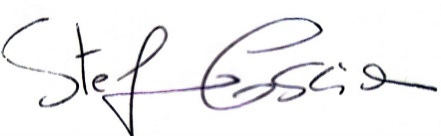 Stef Coscia